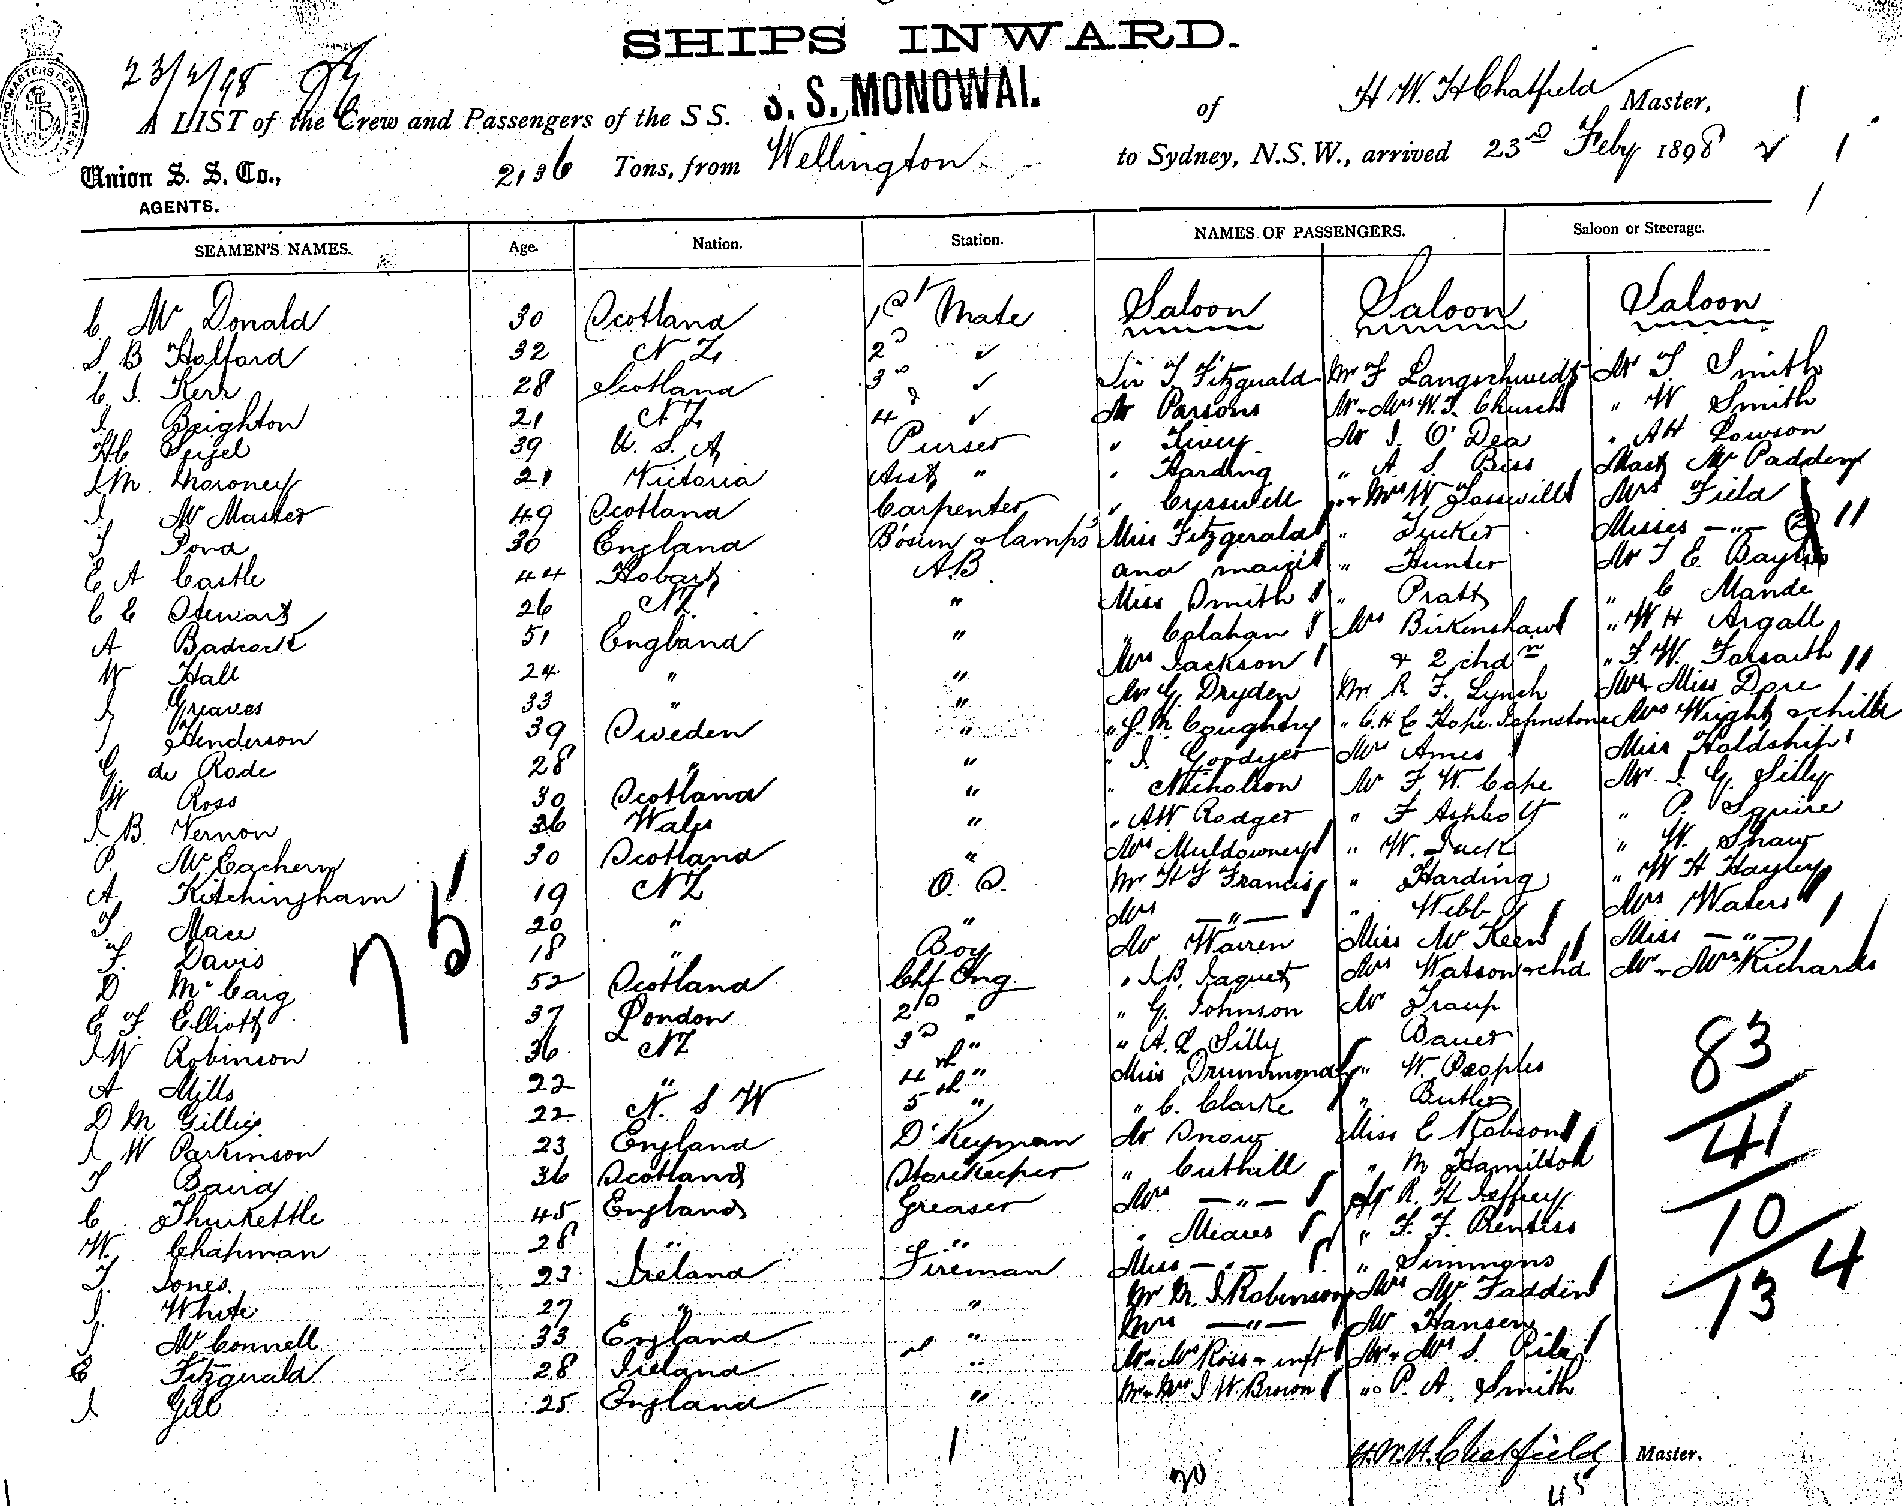 SHIPS INWARD.
23/2/98
S. S. MONOWAI.
H W H Chatfield
A LIST of the Crew and Passengers of the S S. of Master,
Union S. S. Co., 2,136 Tons, from Wellington to Sydney, N.S.W., arrived 23rd Feby 1898
AGENTS.
SEAMEN'S NAMES. Age. Nation. Station. NAMES OF PASSENGERS. Saloon or Steerage.
C McDonald 30 Scotland 1st Mate Saloon Saloon Saloon
S B Holford 32 N Z 2D " Sir T Fitzgerald Mr F Langschwedt Mr T Smith
C J. Kerr 28 Scotland 3D " Mr Parsons Mr & Mrs W. J. Church " W Smith
J Beighton 21 N Z 4 " " Livey Mr J. O'Dea " AH Lowson
HC Sigel 39 U. S. A Purser " Harding " A. S. Biss Mast McPaddery
J M. Moroney 21 Victoria Asst " " Cresswell " & Mrs W Josswill Mrs Field
J. McMaster 49 Scotland Carpenter Miss Fitzgerald " Tucker Misses " 2
J Pond 30 England Bosun & lamps and maid " Hunter Mr T E Bayliss
E A Castle 44 Hobart A.B Miss Smith " Pratt " C Mande
C E Stewart 26 NZ " " Calahan Mrs Birkenshaw " W H Argall
A Badcock 51 England " Mrs Jackson & 2 chdn " F. W. Forsaith
W Hall 24 " " Mr G. Dryden Mr R. F. Lynch Mr & Miss Dore
J Greaves 33 " " " J. M Coughtry " C. H E Hope Johnstone Mrs Wright & child
J Henderson 39 Sweden " " J. Goodyer Mr Ames Miss Holdship
G. de Rode 28 " " " Nicholson Mr F W. Cape Mr J. G. Silly
W Ross 30 Scotland " " AW Rodger " F Ashbolt " P. Squire
J B. Vernon 36 Wales " Mrs Muldowney " W. Luck " W. Shaw
P. McEachern 30 Scotland " Mr H J Francis " Harding " W H Hayley
A Kitchingham 19 NZ O. S. Mrs " " Webb Mrs Waters
T Mace 20 " " Mr Warren Miss McKeen Miss "
F. Davis 18 " Boy " J. B. Jaquet Mrs Watson & chd Mr & Mrs Richards
D McCaig 52 Scotland Chf Eng. " G. Johnson Mr Traup
E F Elliott 37 London 2D " " A. L Silly " Bauer
J W Robinson 36 NZ 3D " Miss Drummond " W. Peoples
A Mills 22 " 4th " " C. Clarke " Butler
D M Gillies 22 N. S W 5th " Mr Snow Miss E Robson
J W Parkinson 23 England D'Keyman " Cuthill " M Hamilton
T Baird 36 Scotland Storekeeper Mrs " Mr R. H Jeffrey
C Thurkettle 45 England Greaser " Meares " F. F. Prentiss
W. Chapman 28 " " Miss " " Simmons
T. Jones. 23 Ireland Fireman Mr M. J Robinson Mrs McFaddin
J. White 27 " " Mrs " Mr Hansen
J McConnell 33 England " Mr & Mrs Ross & inft Mr & Mrs S. Pile
E Fitzgerald 28 Ireland " Mr & Mrs J W Brown " P. A. Smith
J Gill 25 England "
75
83
41
10
13 4
H.W.H. Chatfield Master.
1
20
45